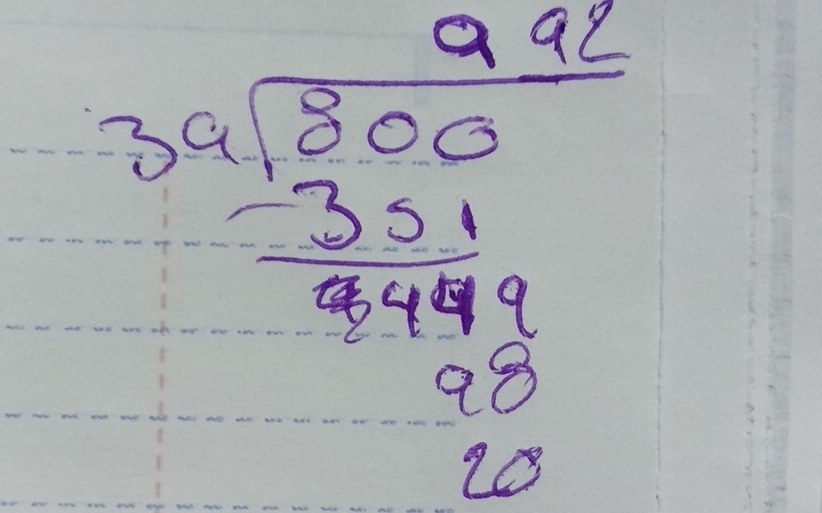 9 92
39 800
- 351
449
98
20